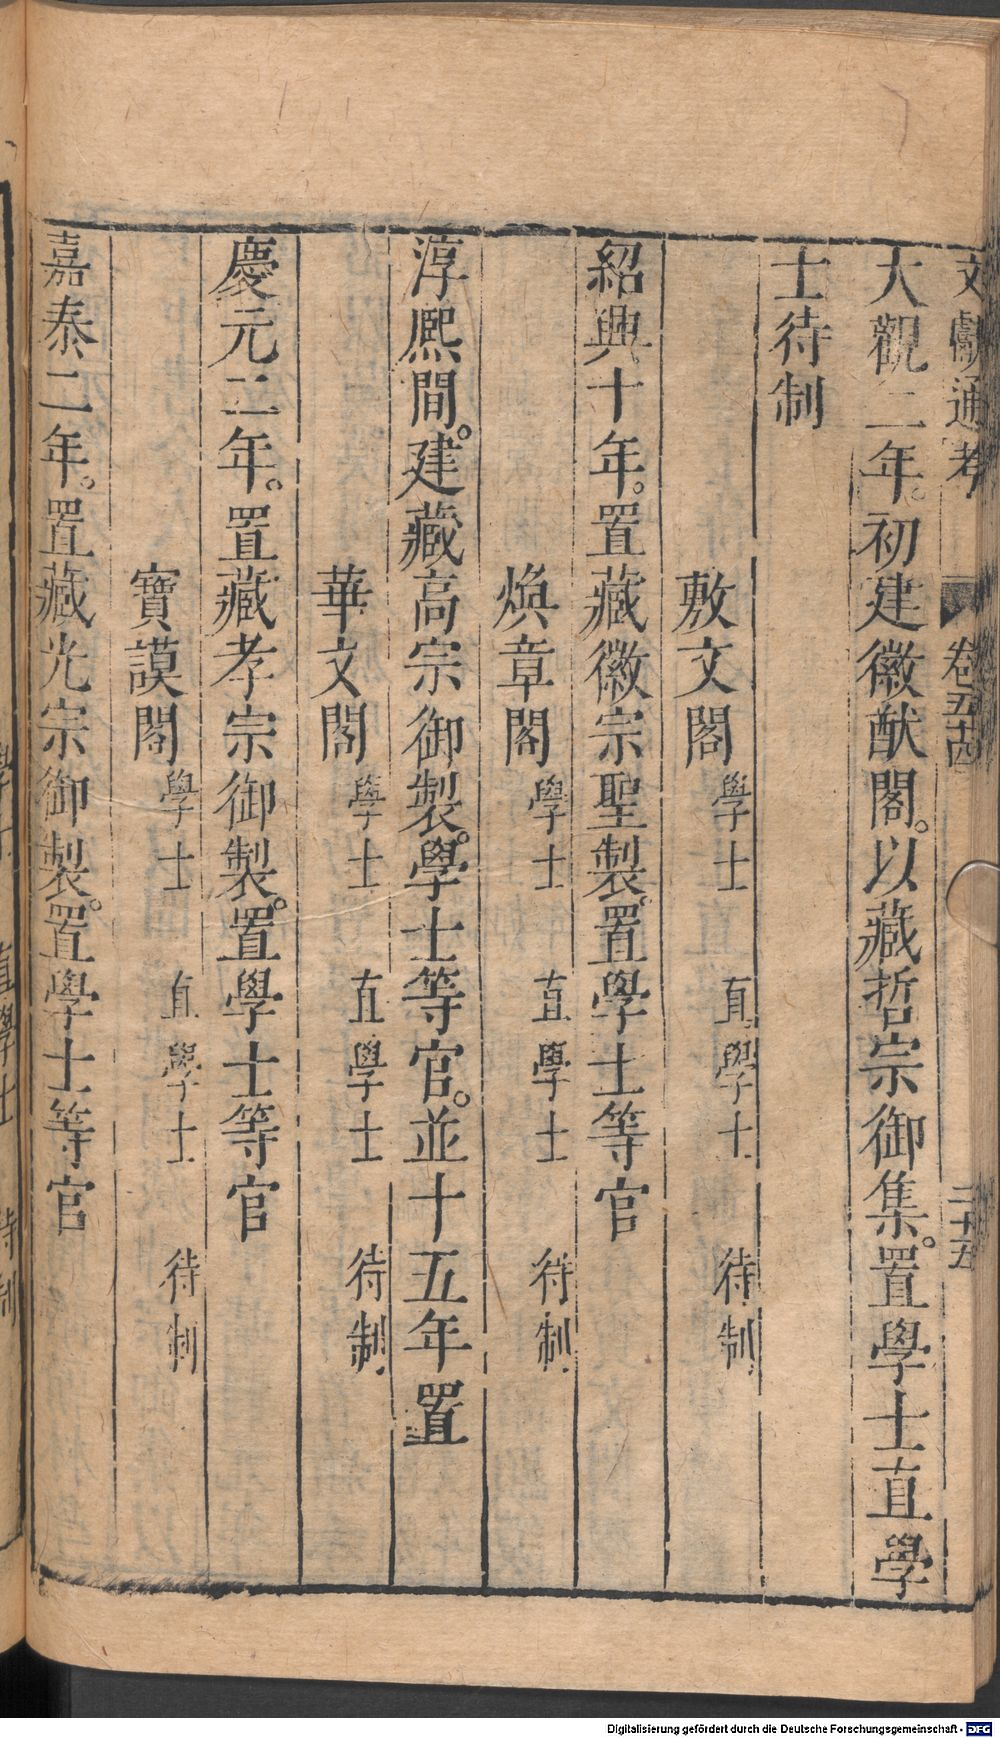 文獻通考 卷五十四 二十五
大觀二年。初建徽猷閣。以藏哲宗御集。置學士直學
士待制
敷文閣 學士 直學士 待制
紹興十年。置藏徽宗聖製。置學士等官
煥章閣 學士 直學士 待制
淳熈間。建藏高宗御製。學士等官。並十五年置
華文閣 學士 直學士 待制
慶元二年。置藏孝宗御製。置學士等官
寶謨閣 學士 直學士 待制
嘉泰二年。置藏光宗御製。置學士等官
學士 直學士 待制
Digitalisierung gefördert durch die Deutsche Forschungsgemeinschaft - DFG